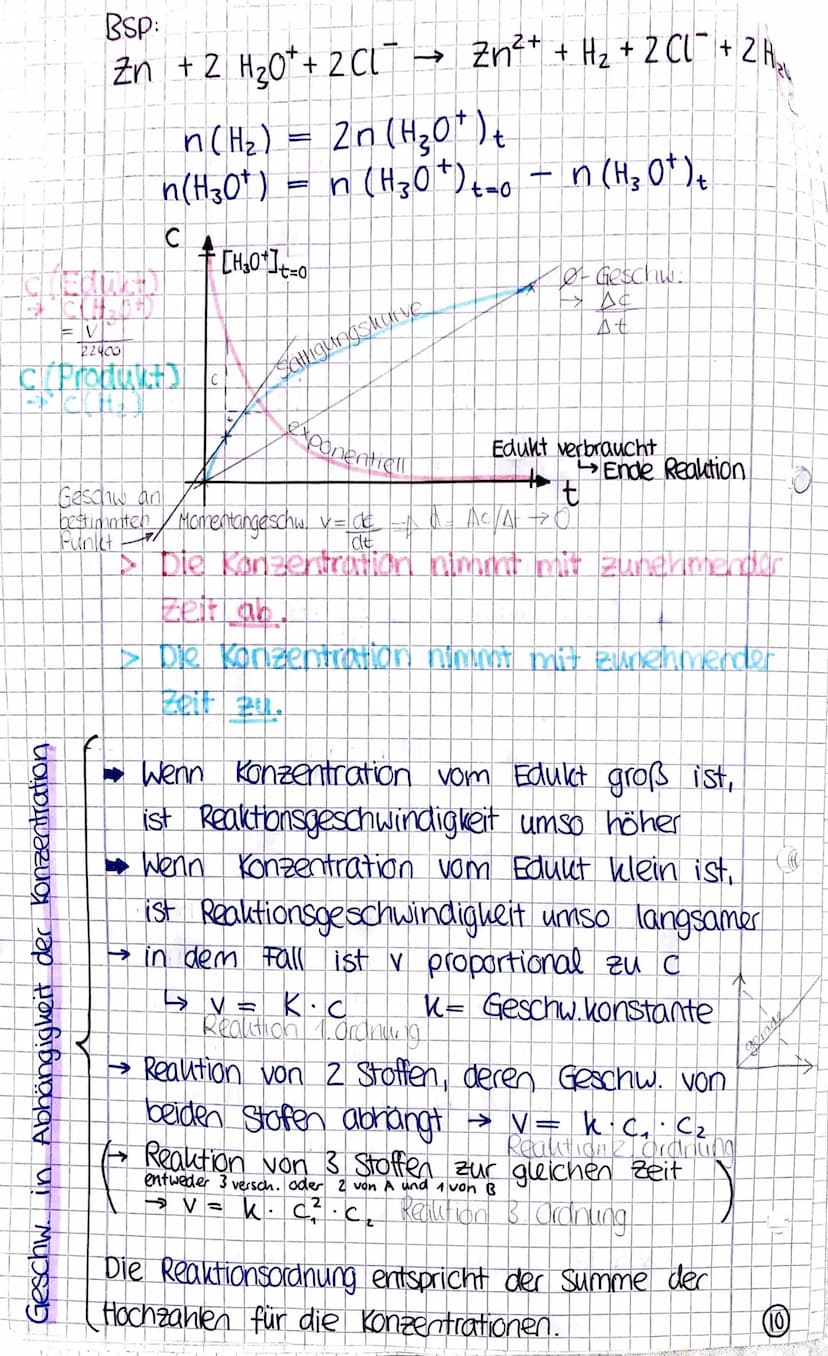 BSP:
Zn + 2 H₃O⁺ + 2 Cl⁻ → Zn²⁺ + H₂ + 2 Cl⁻ + 2 H₂O
n(H₂) = 2n(H₃O⁺)t
n(H₃O⁺) = n(H₃O⁺)t=0 − n(H₃O⁺)t
C
[H₃O⁺]t=0
c(Edukt)
→ c(H₃O⁺)
= V
22400
C(Produkt)
→ c(H₂)
c
Sättigungskurve
Ø-Geschw.
→ Δc
Δt
exponentiell
Edukt verbraucht
↳ Ende Reaktion
t
Geschw an
bestimmten
Punkt
Momentangeschw. v = dc/dt → d = Δc/Δt → 0
> Die Konzentration nimmt mit zunehmender
Zeit ab.
> Die Konzentration nimmt mit zunehmender
Zeit zu.
Geschw. in Abhängigkeit der Konzentration
➡ Wenn Konzentration vom Edukt groß ist,
ist Reaktionsgeschwindigkeit umso höher
➡ Wenn Konzentration vom Edukt klein ist,
ist Reaktionsgeschwindigkeit umso langsamer
→ in dem Fall ist v proportional zu c
↳ v = K · c K = Geschw.konstante
Reaktion 1. Ordnung
gerade
→ Reaktion von 2 Stoffen, deren Geschw. von
beiden Stofen abhängt → v = k · c₁ · c₂
Reaktion 2. Ordnung
(→ Reaktion von 3 Stoffen zur gleichen Zeit
entweder 3 versch. oder 2 von A und 1 von B
→ v = k · c₁² · c₂ Reaktion 3. Ordnung)
Die Reaktionsordnung entspricht der Summe der
Hochzahlen für die Konzentrationen.
10